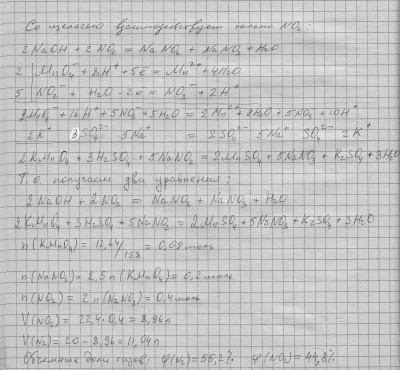 Со щелочью взаимодействует только NO₂:
2NaOH + 2NO₂ = NaNO₂ + NaNO₃ + H₂O
2 | MnO₄⁻ + 8H⁺ + 5ē = Mn²⁺ + 4H₂O
5 | NO₂⁻ + H₂O - 2e = NO₃⁻ + 2H⁺
2MnO₄⁻ + 16H⁺ + 5NO₂⁻ + 5H₂O = 2Mn²⁺ + 8H₂O + 5NO₃⁻ + 10H⁺
2K⁺ 3SO₄²⁻ 5Na⁺ = 2SO₄²⁻ 5Na⁺ SO₄²⁻ 2K⁺
2KMnO₄ + 3H₂SO₄ + 5NaNO₂ = 2MnSO₄ + 5NaNO₃ + K₂SO₄ + 3H₂O
Т.о. получаем два уравнения:
2NaOH + 2NO₂ = NaNO₂ + NaNO₃ + H₂O
2KMnO₄ + 3H₂SO₄ + 5NaNO₂ = 2MnSO₄ + 5NaNO₃ + K₂SO₄ + 3H₂O
n(KMnO₄) = 12,64/158 = 0,08 моль
n(NaNO₂) = 2,5 n(KMnO₄) = 0,2 моль
n(NO₂) = 2 n(NaNO₂) = 0,4 моль
V(NO₂) = 22,4 · 0,4 = 8,96 л
V(N₂) = 20 - 8,96 = 11,04 л
Объемные доли газов: φ(N₂) = 55,2% φ(NO₂) = 44,8%